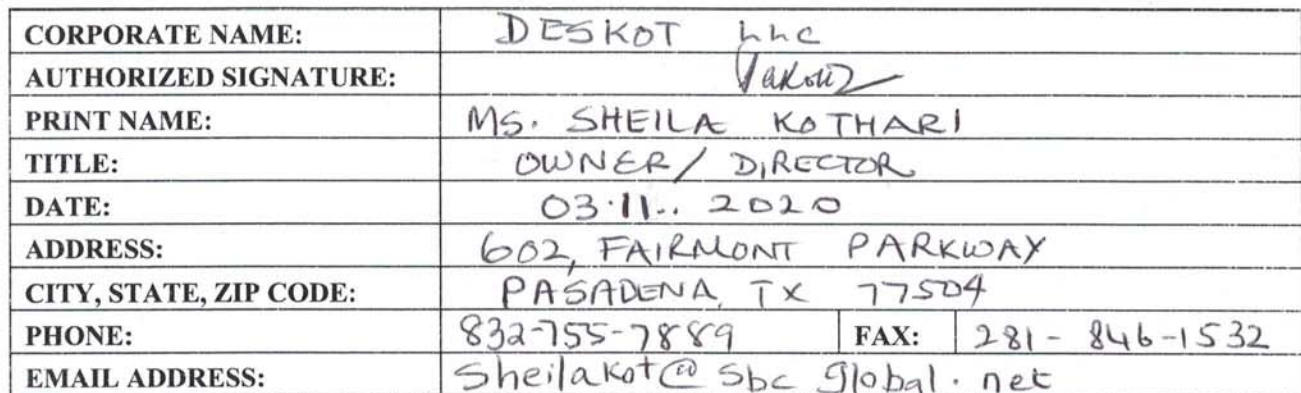 CORPORATE NAME: DESKOT LLC
AUTHORIZED SIGNATURE:
PRINT NAME: MS. SHEILA KOTHARI
TITLE: OWNER/ DIRECTOR
DATE: 03.11.. 2020
ADDRESS: 602, FAIRMONT PARKWAY
CITY, STATE, ZIP CODE: PASADENA, TX 77504
PHONE: 832-755-7889 FAX: 281- 846-1532
EMAIL ADDRESS: Sheilakot@sbcglobal.net